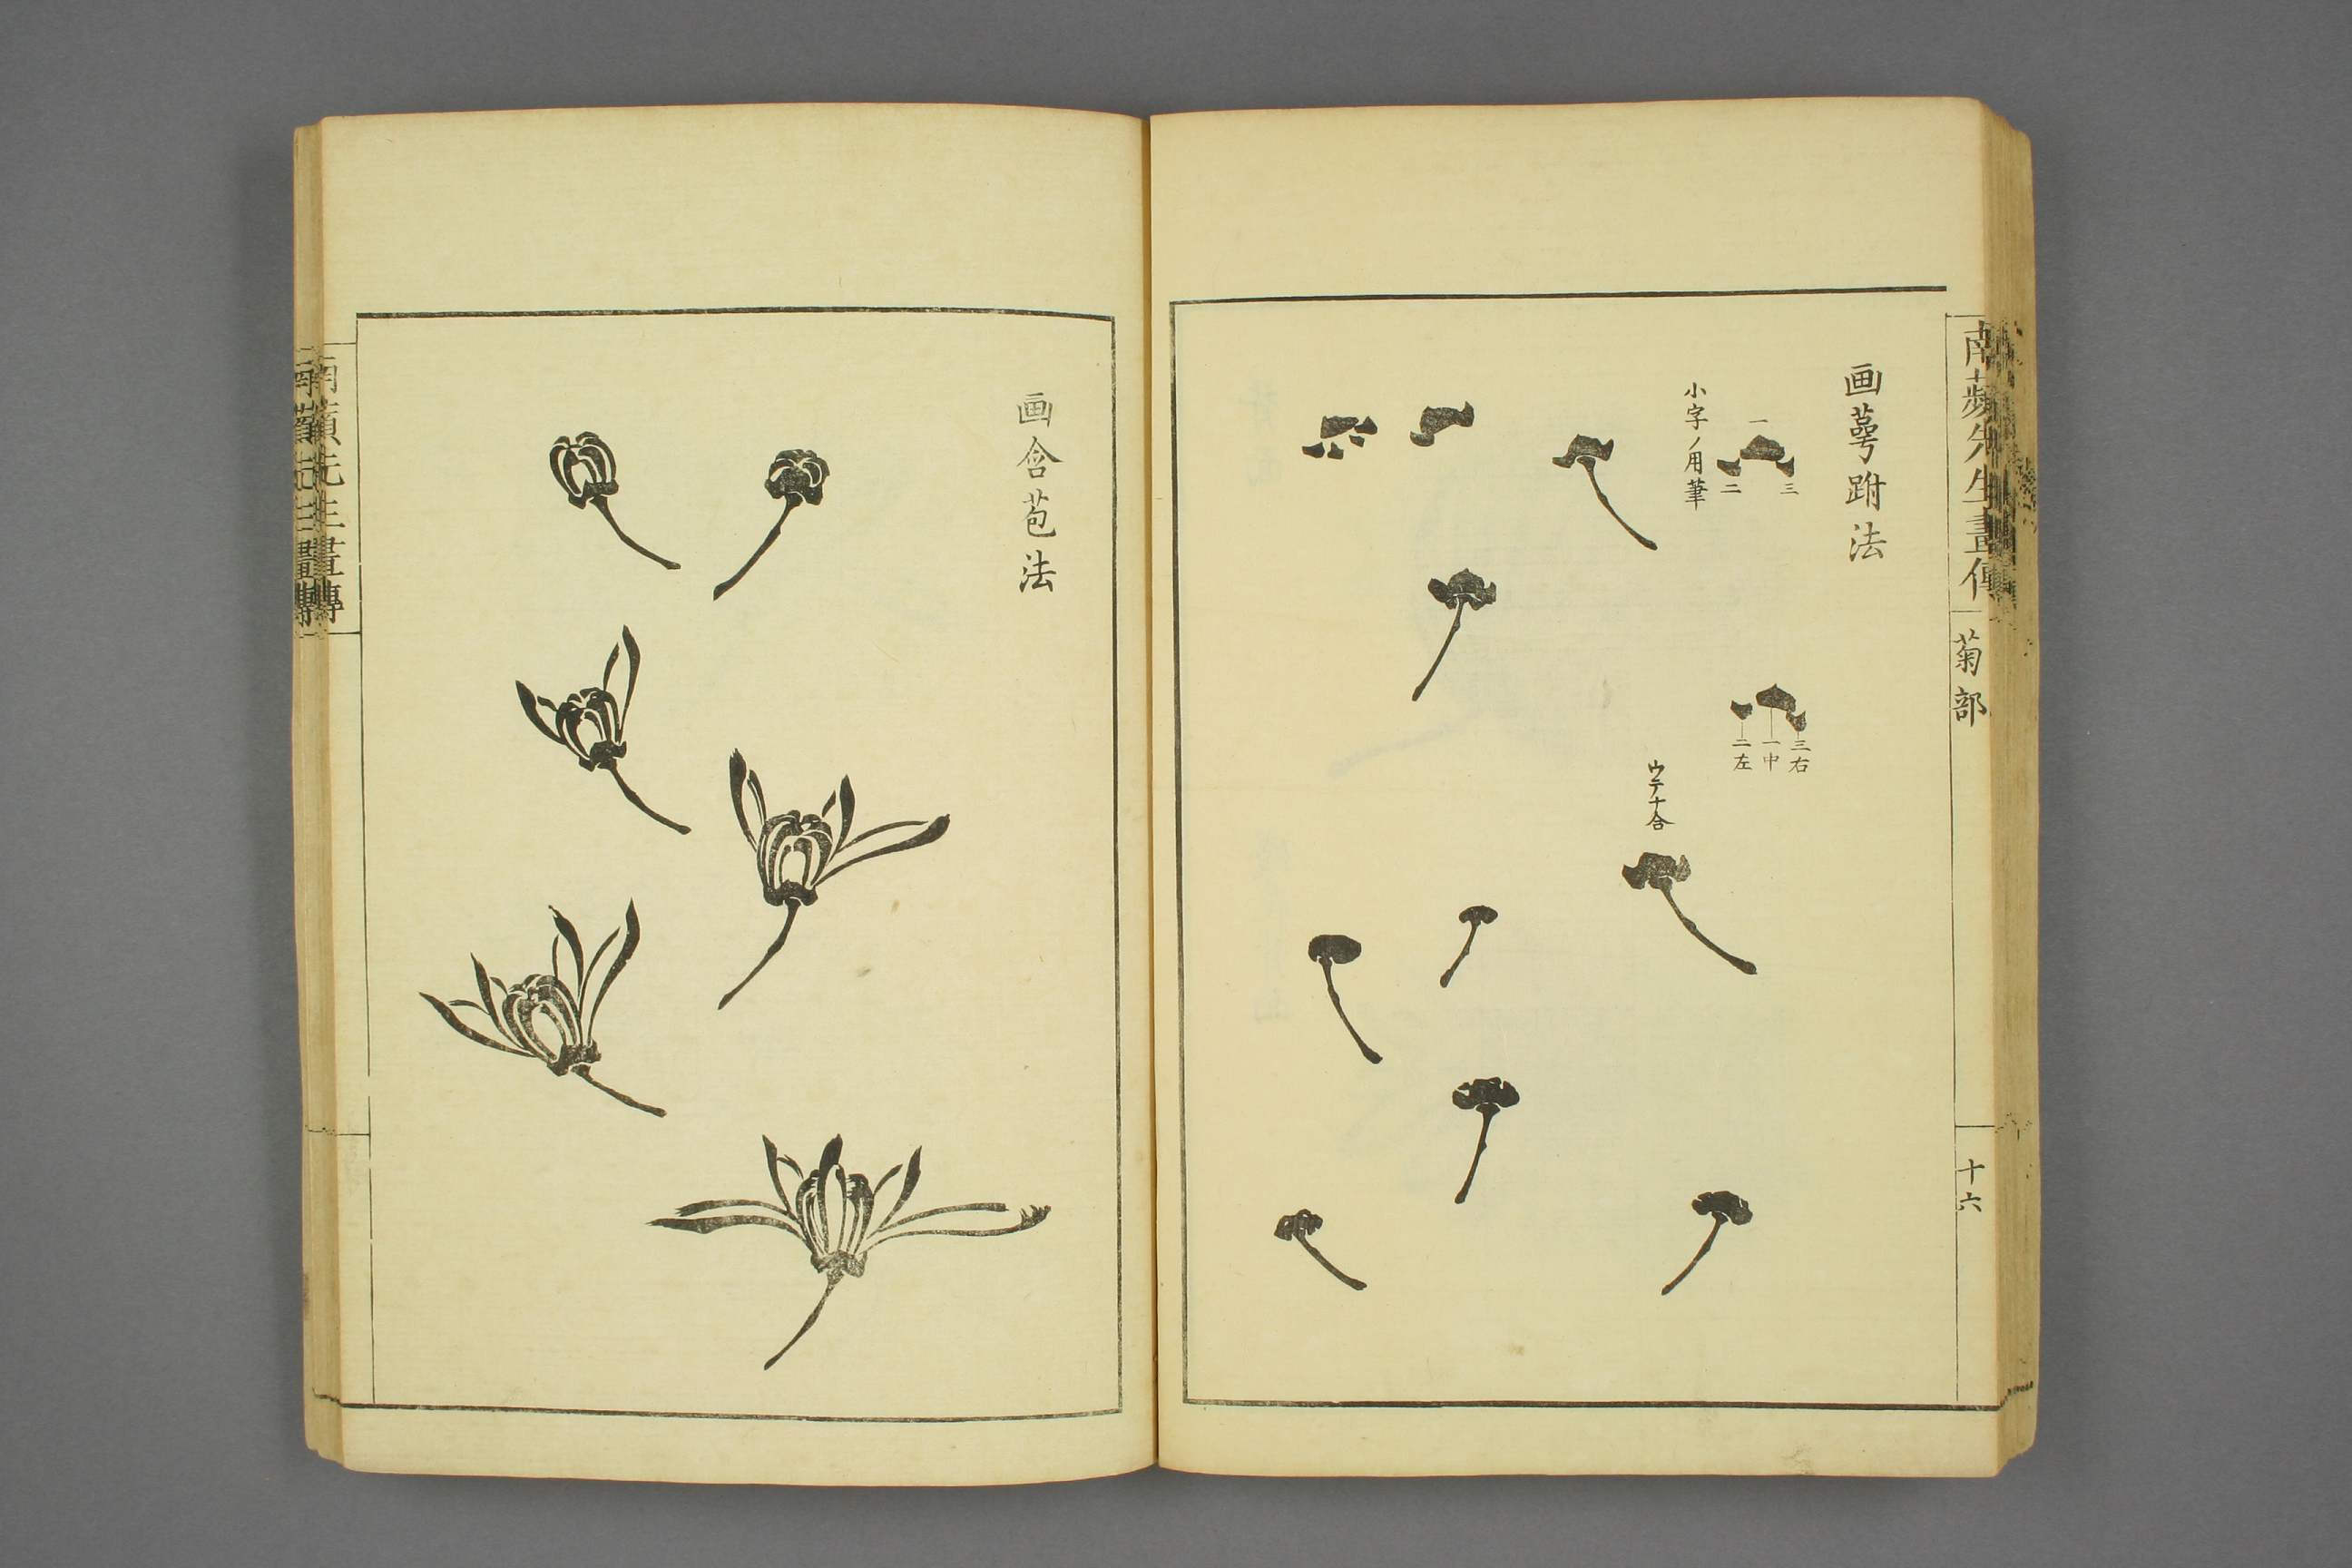 南蘋先生畫傳
菊部
十六
画萼跗法
一
二
三
小字ノ用筆
三右
一中
二左
ウテナ合
画含苞法
南蘋先生畫傳